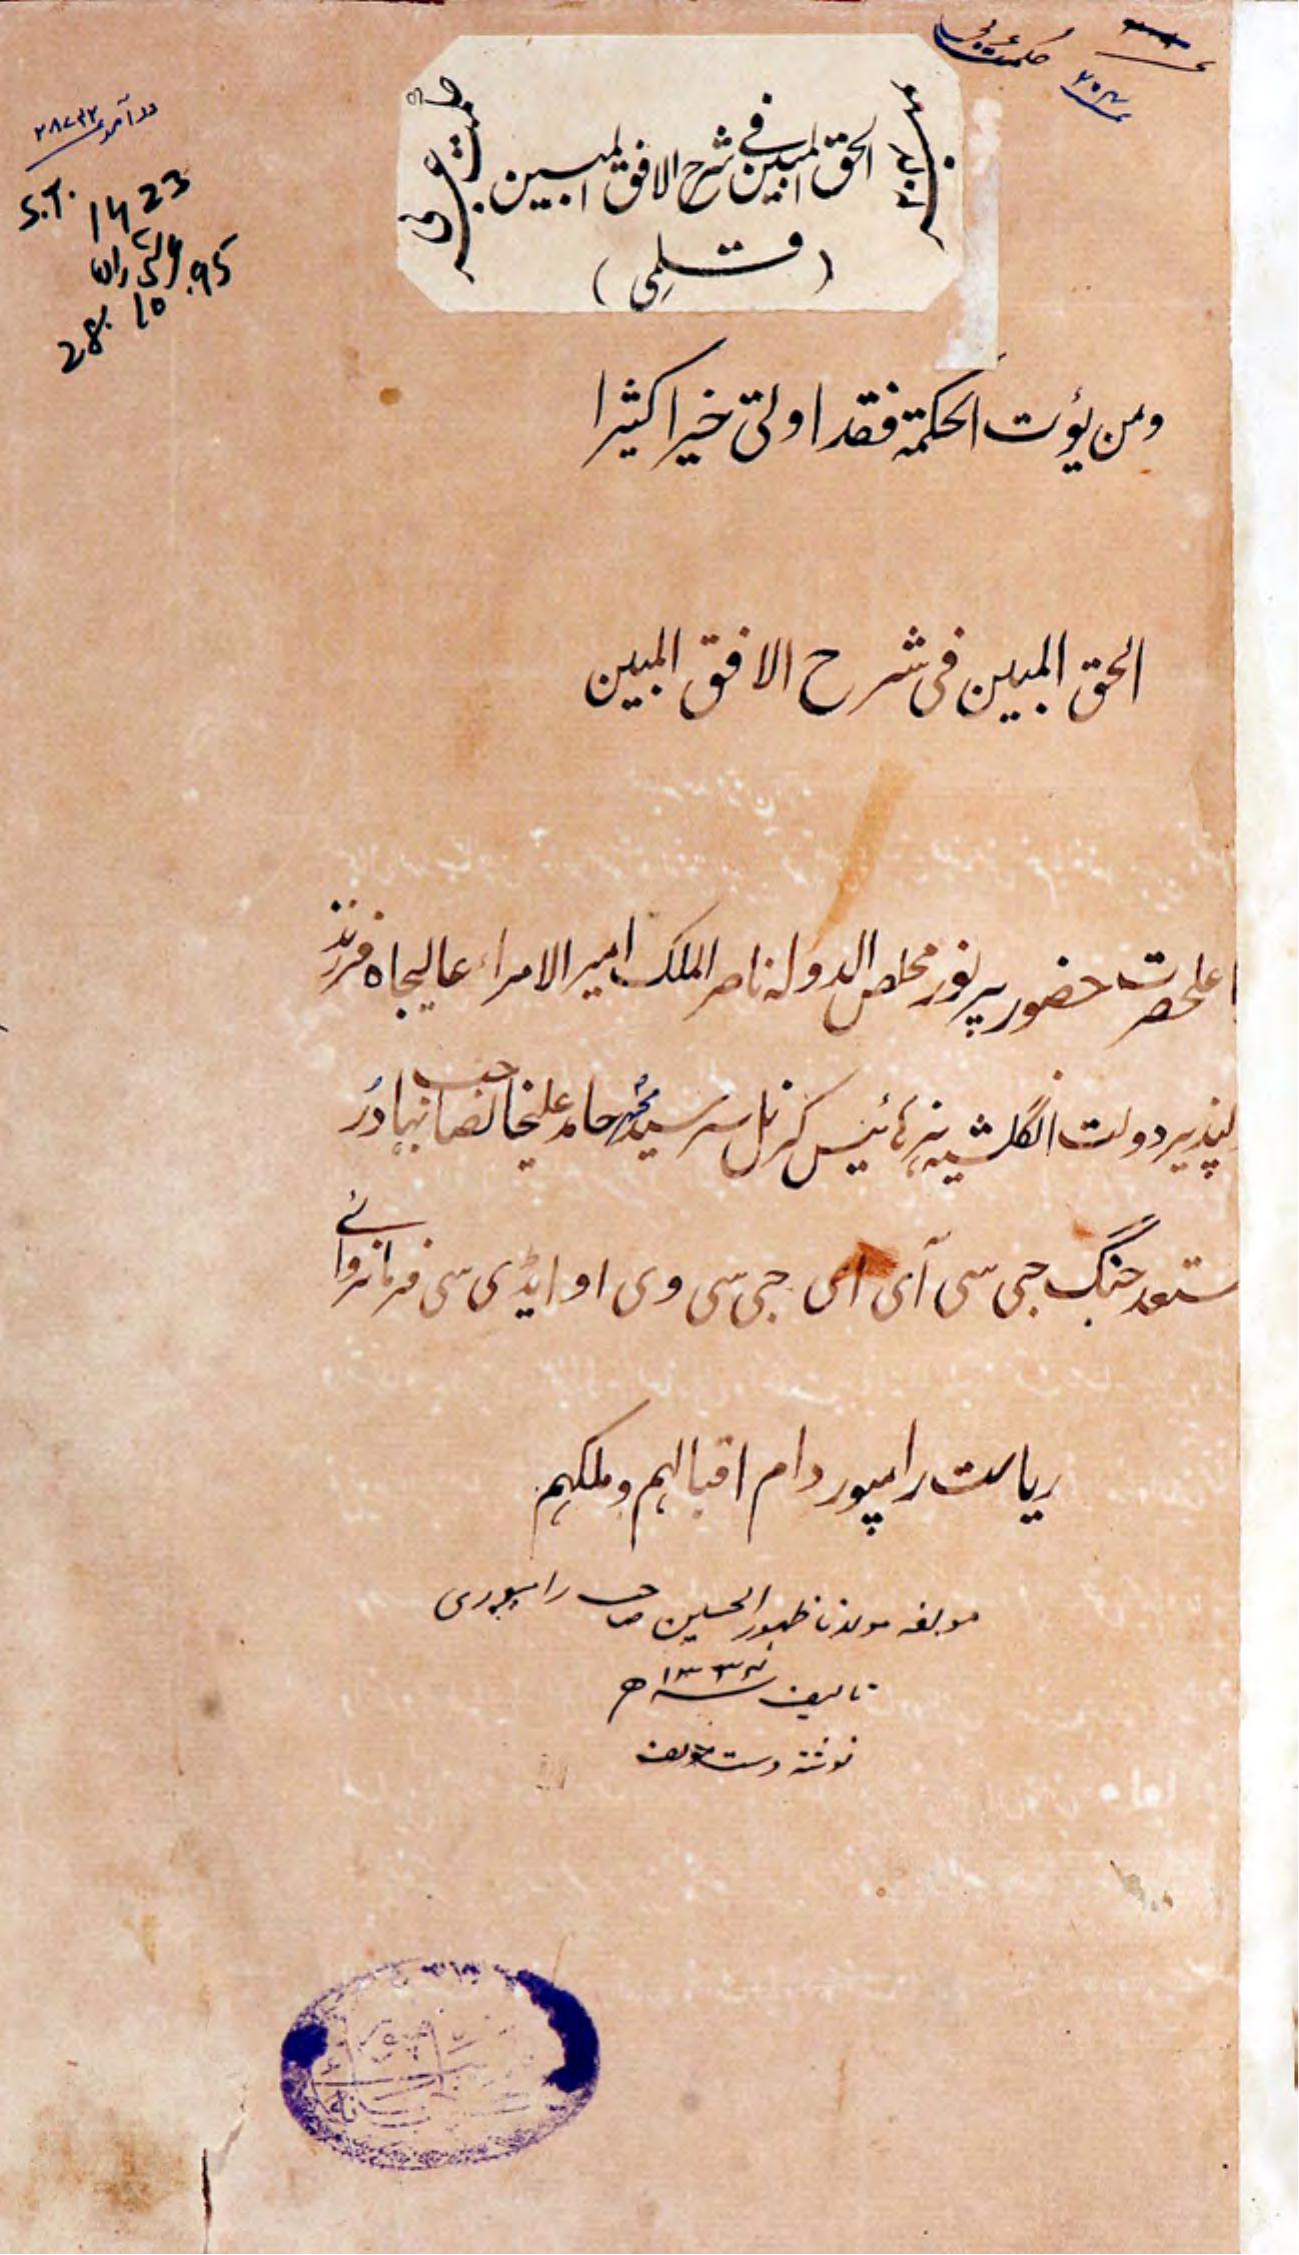 حکمت عربی
درآمد ۲۸۷۳۲
S.T. 1423
28.10.95
حکمت عربی
الحق المبین فی شرح الافق المبین
(قلمی)
ومن یؤت الحکمة فقد اوتی خیرا کثیرا
الحق المبین فی شرح الافق المبین
اعلحضرت حضور پرنور مخلص الدولہ ناصر الملک امیر الامراء عالیجاہ فرزند
لپذیر دولت انگلشیہ ہزہائینس کرنل سر سید محمد حامد علیخانصاحب بہادر
مستعد جنگ جی سی آئی ای جی سی وی او ایڈی سی فرمانروائے
ریاست رامپور دام اقبالہم وملکہم
مولفہ مولانا ظہور الحسین صاحب رامپوری
تالیف سنہ ۱۳۳۴ھ
نوشتہ دست مولف